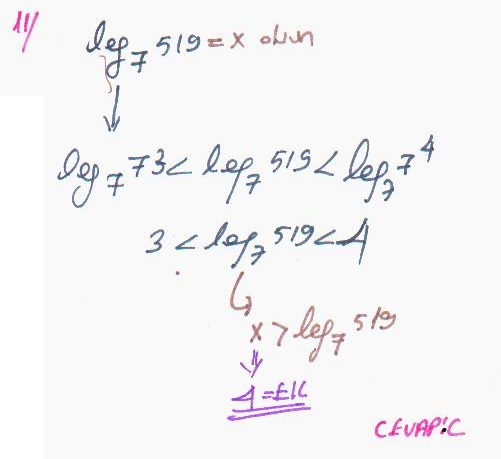 11/
log₇ 519 = x olsun
log₇ 7³ < log₇ 519 < log₇ 7⁴
3 < log₇ 519 < 4
x > log₇ 519
4 = EK
CEVAP:C